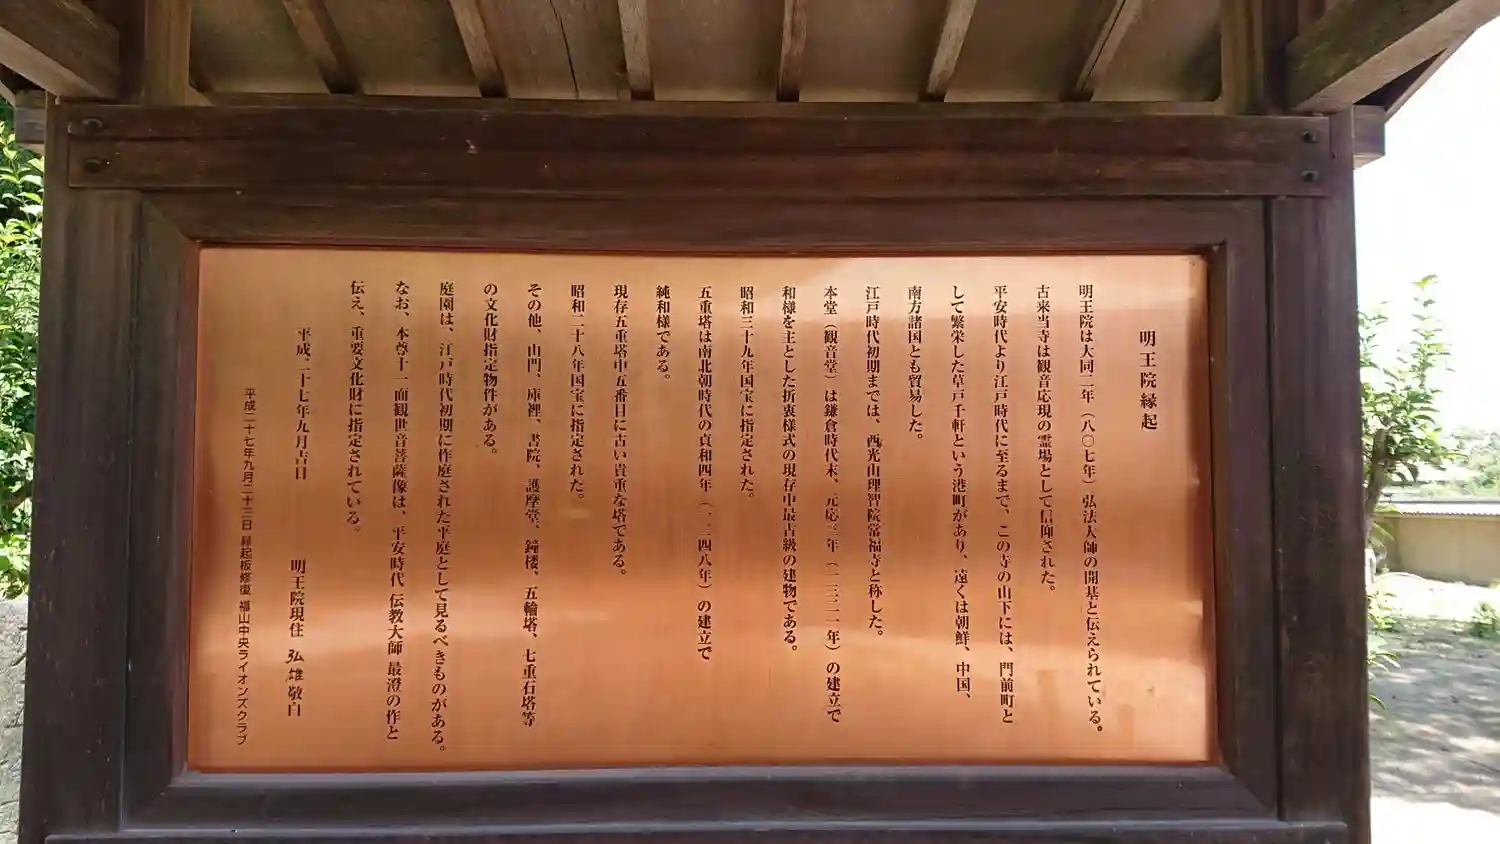 明王院縁起
明王院は大同二年（八〇七年）弘法大師の開基と伝えられている。
古来当寺は観音応現の霊場として信仰された。
平安時代より江戸時代に至るまで、この寺の山下には、門前町と
して繁栄した草戸千軒という港町があり、遠くは朝鮮、中国、
南方諸国とも貿易した。
江戸時代初期までは、西光山理智院常福寺と称した。
本堂（観音堂）は鎌倉時代末、元応三年（一三二一年）の建立で
和様を主とした折衷様式の現存中最古級の建物である。
昭和三十九年国宝に指定された。
五重塔は南北朝時代の貞和四年（一三四八年）の建立で
純和様である。
現存五重塔中五番目に古い貴重な塔である。
昭和二十八年国宝に指定された。
その他、山門、庫裡、書院、護摩堂、鐘楼、五輪塔、七重石塔等
の文化財指定物件がある。
庭園は、江戸時代初期に作庭された平庭として見るべきものがある。
なお、本尊十一面観世音菩薩像は、平安時代 伝教大師 最澄の作と
伝え、重要文化財に指定されている。
平成二十七年九月吉日　明王院現住 弘雄 敬白
平成二十七年九月二十三日 縁起板修復 福山中央ライオンズクラブ